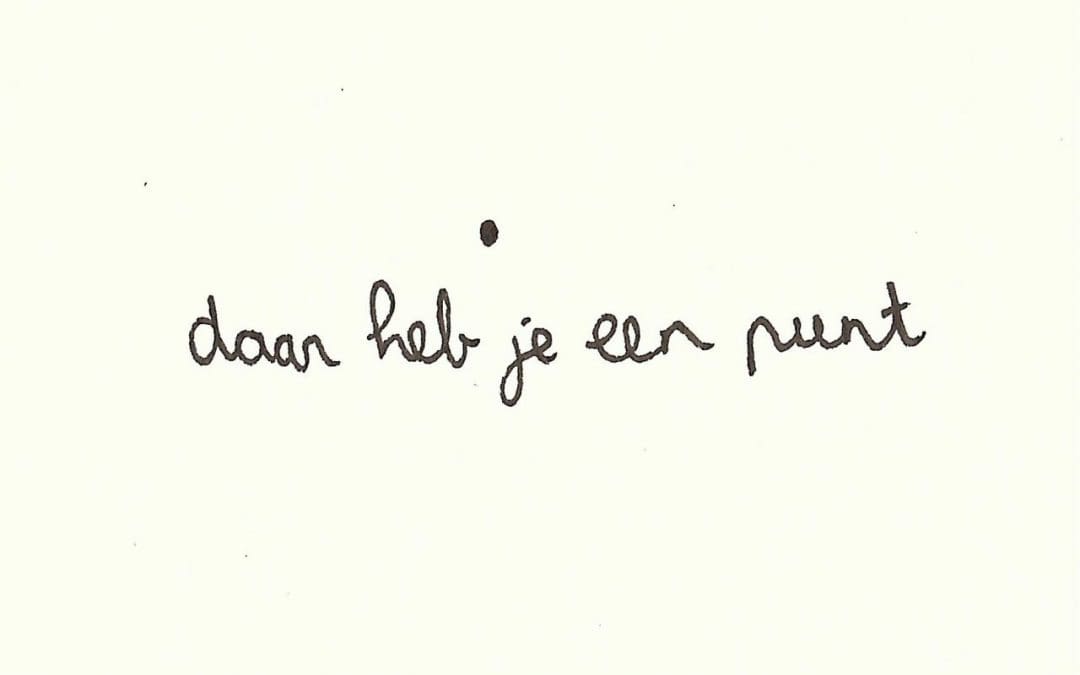 daar heb je een punt